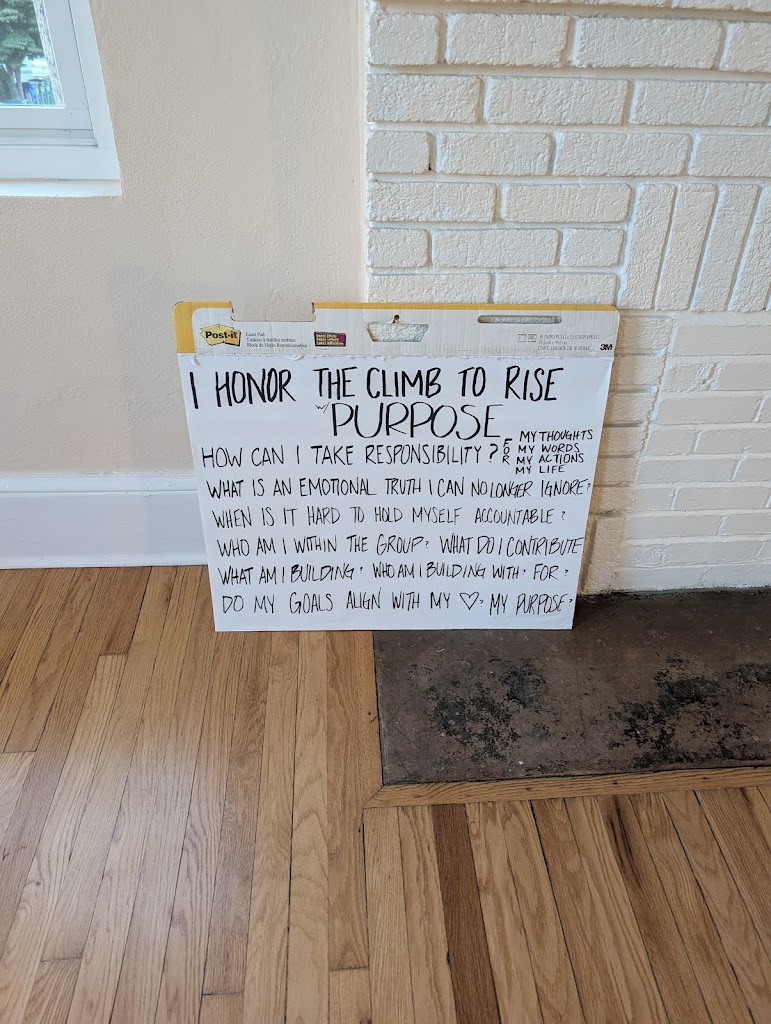 Post-it
Easel Pad
3M
I HONOR THE CLIMB TO RISE
w/ PURPOSE
HOW CAN I TAKE RESPONSIBILITY? FOR MY THOUGHTS
MY WORDS
MY ACTIONS
MY LIFE
WHAT IS AN EMOTIONAL TRUTH I CAN NO LONGER IGNORE?
WHEN IS IT HARD TO HOLD MYSELF ACCOUNTABLE?
WHO AM I WITHIN THE GROUP? WHAT DO I CONTRIBUTE
WHAT AM I BUILDING? WHO AM I BUILDING WITH? FOR?
DO MY GOALS ALIGN WITH MY ♡? MY PURPOSE?